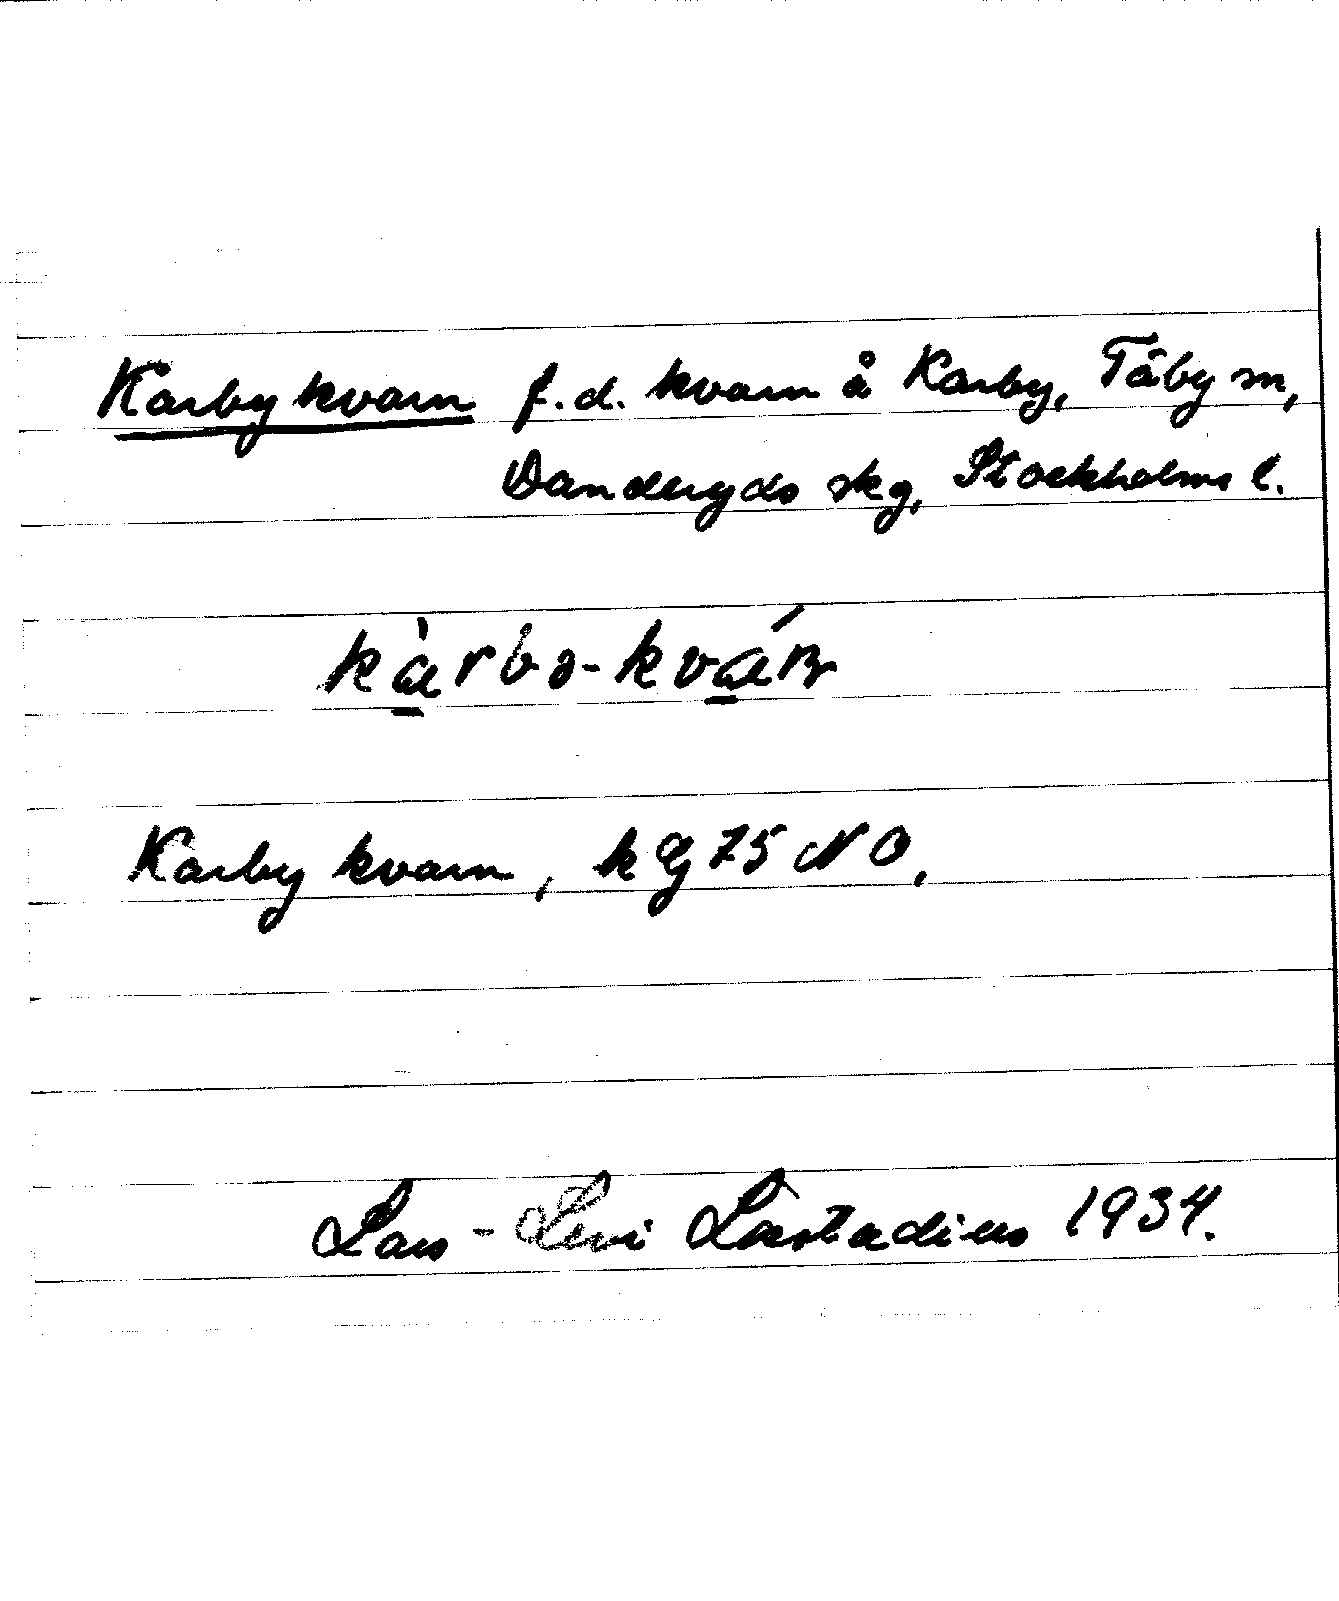 Karby kvarn f.d. kvarn å Karby, Täby sn,
Danderyds skg, Stockholms l.
kàrbə-kván
Karby kvarn, kg 75 NO,
Lars-Levi Læstadius 1934.